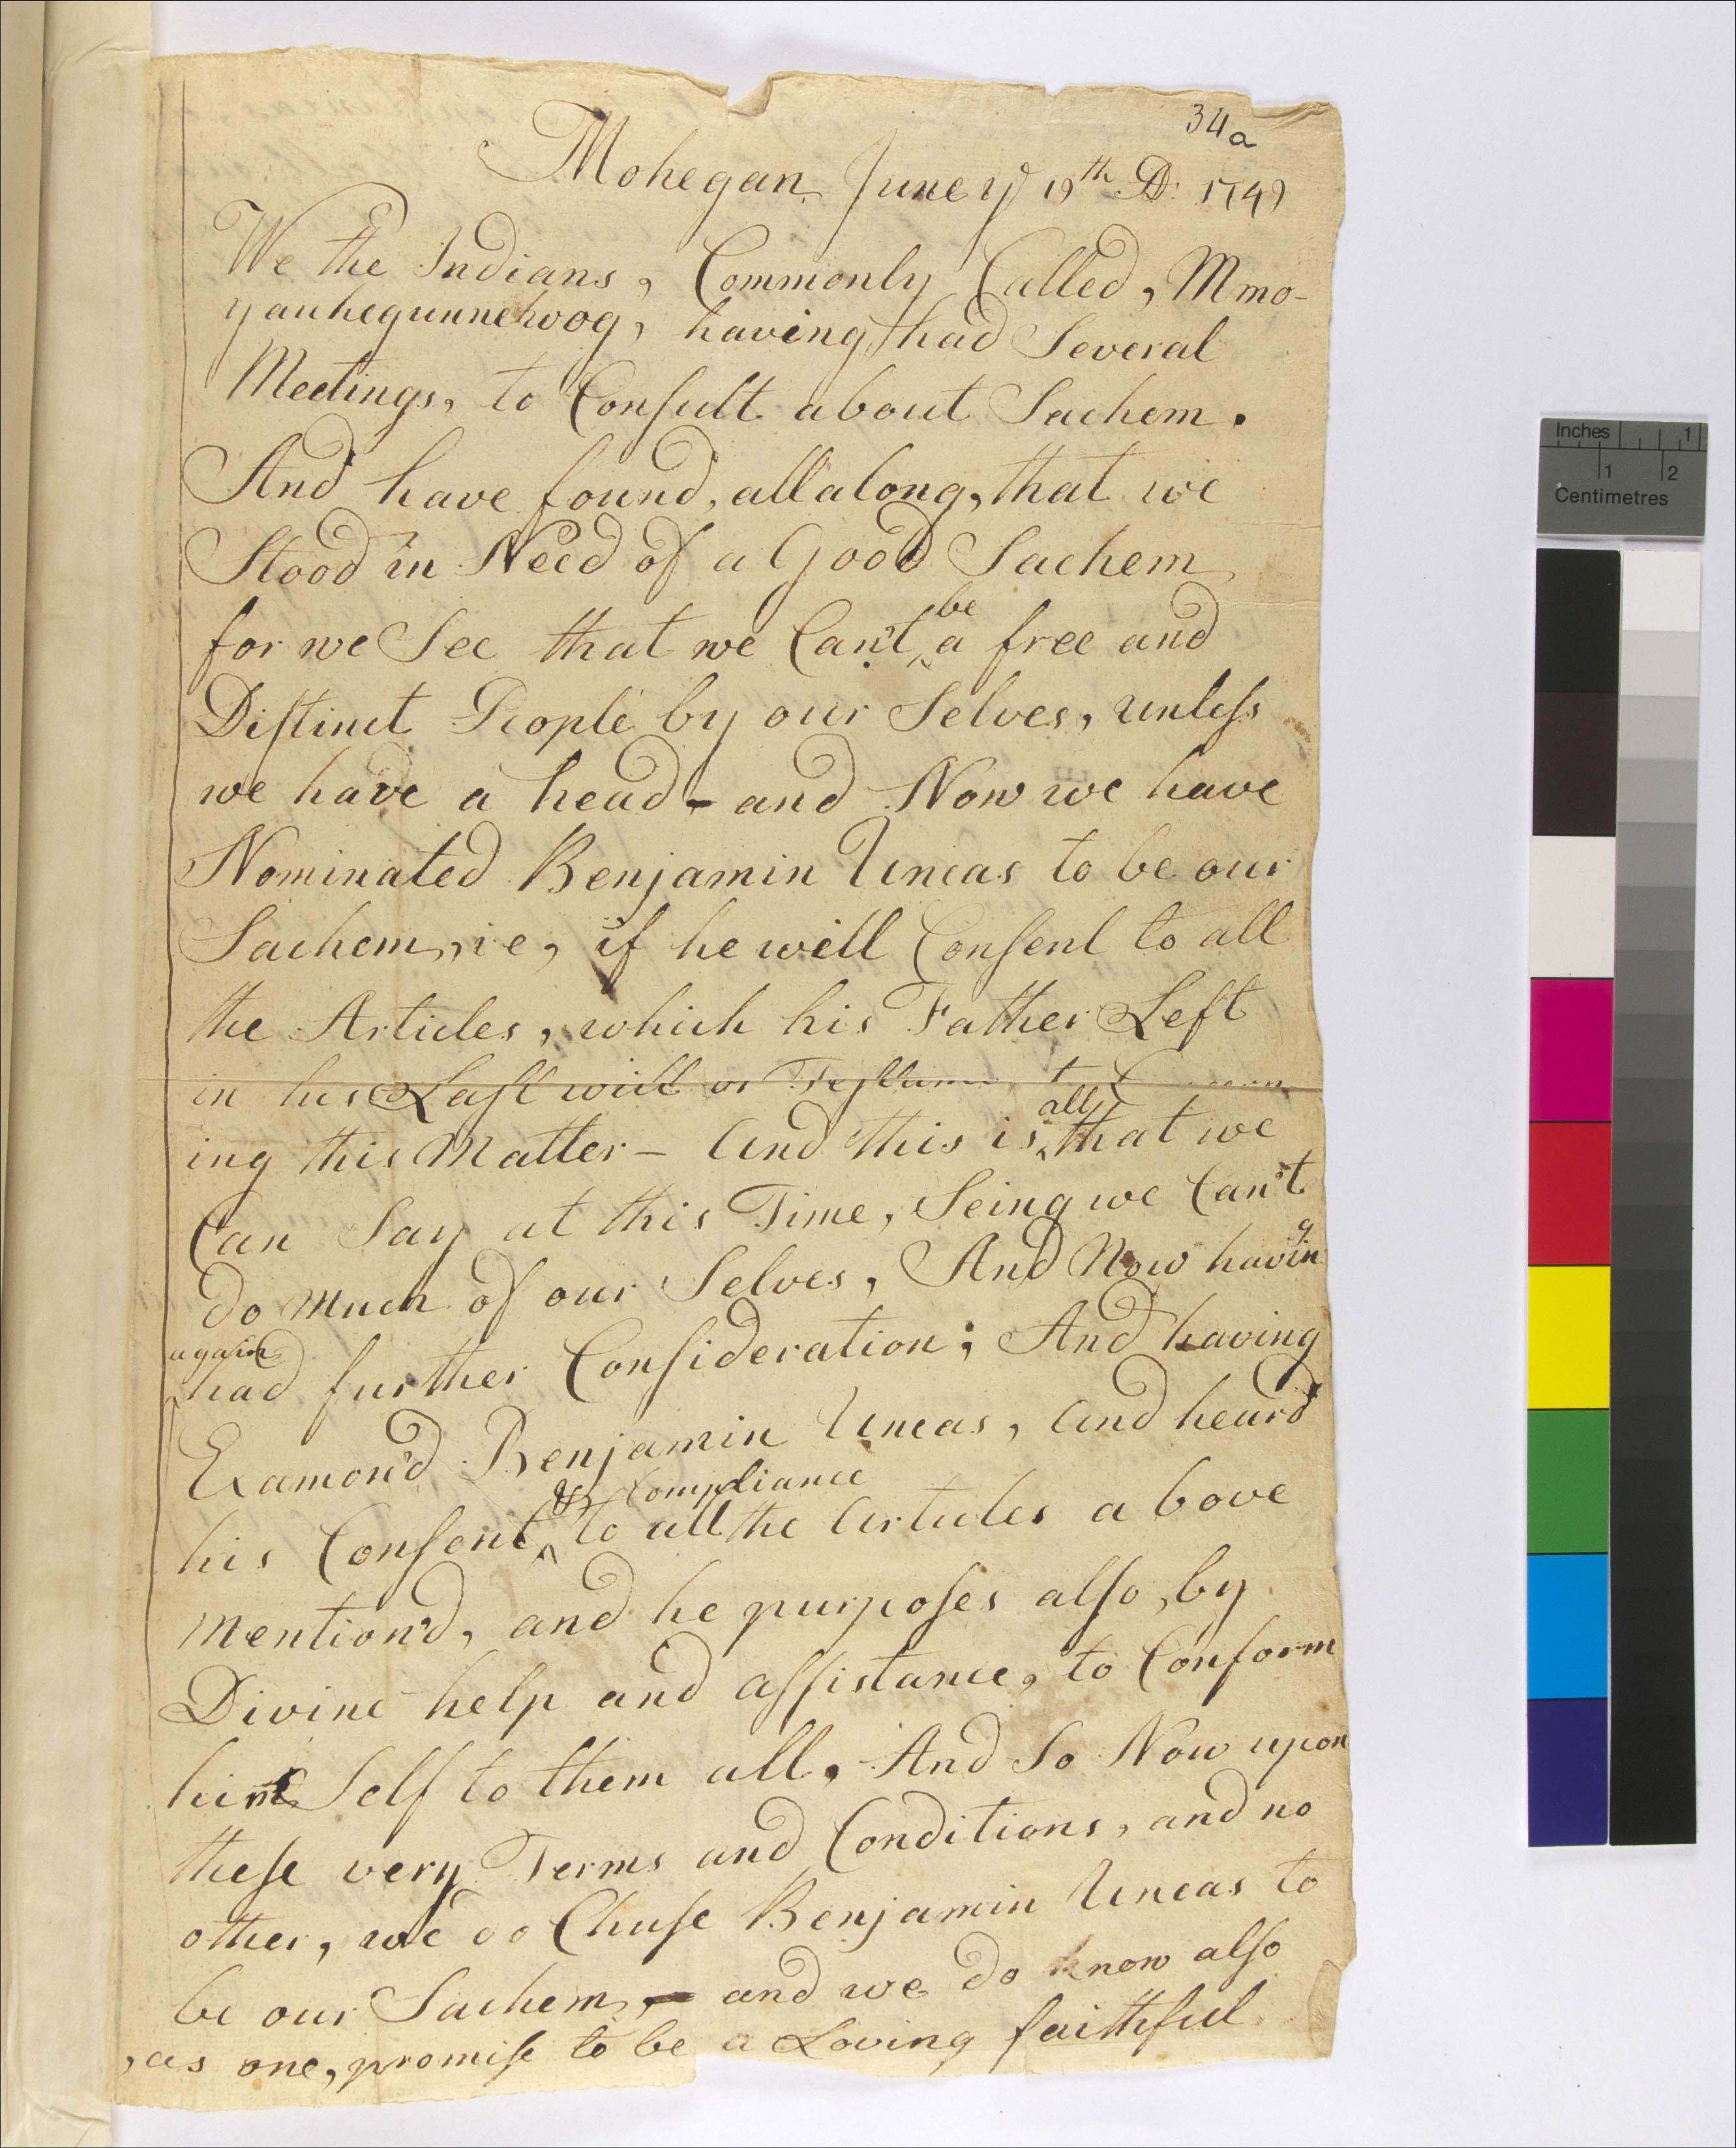 34a
Mohegan June ye 19th D: 1749
We the Indians, Commonly Called, Mmo-
yauhegunnehwog, having had Several
Meetings, to Conſult about Sachem.
And have found, all along, that we
Stood in Need of a Good Sachem
for we See that we Can't be a free and
Diſtinct People by our Selves, unleſs
we have a head - and Now we have
Nominated Benjamin Uncas to be our
Sachem, ie, if he will Conſent to all
the Articles, which his Father Left
in his Laſt will or
ing this Matter - And this is all that we
Can Say at this Time, Seing we Can't
do Much of our Selves, And Now having
again had further Conſideration; And having
Examon'd Benjamin Uncas, and heard
his Conſent & Compliance to all the Articles a bove
Mention'd, and he purpoſes alſo, by
Divine help and aſſistance, to Conform
him Self to them all. And So Now upon
theſe very Terms and Conditions, and no
other, we do Chuſe Benjamin Uncas to
be our Sachem, - and we do know alſo
, as one, promiſe to be a Loving faithful
Inches 1
1 2
Centimetres